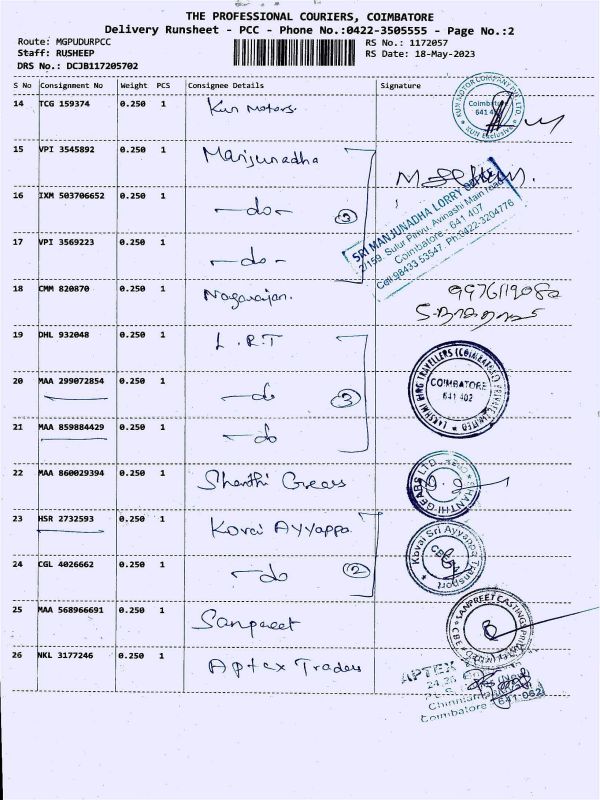 THE PROFESSIONAL COURIERS, COIMBATORE
Delivery Runsheet - PCC - Phone No.:0422-3505555 - Page No.:2
Route: MGPUDURPCC RS No.: 1172057
Staff: RUSHEEP RS Date: 18-May-2023
DRS No.: DCJB117205702
S No Consignment No Weight PCS Consignee Details Signature
14 TCG 159374 0.250 1 Kun Motors
KUN MOTOR COMPANY PVT. LTD.
Coimbatore
641
KUN Exclusive
15 VPI 3545892 0.250 1 Manjunadha
16 IXM 503706652 0.250 1 -do- 3
17 VPI 3569223 0.250 1 -do-
SRI MANJUNADHA LORRY
2/159, Sulur Pirivu, Avinashi Main road
Coimbatore - 641 407
Cell:98433 53547, Ph:0422-3204776
18 CMM 820870 0.250 1 Nagarajan. 9976119082
19 DHL 932048 0.250 1 L.R.T
20 MAA 299072854 0.250 1 -do 3
21 MAA 859884429 0.250 1 -do
LAKSHMI RING TRAVELLERS (COIMBATORE) PRIVATE LIMITED
COIMBATORE
641 402
22 MAA 860029394 0.250 1 Shanthi Gears
SHANTHI GEARS LTD.
23 HSR 2732593 0.250 1 Kovai Ayyappa
24 CGL 4026662 0.250 1 -do 2
Kovai Sri Ayyappa Transport
CBE
25 MAA 568966691 0.250 1 Sanpreet
SANPREET CASTINGS PRIVATE LIMITED
CBE
26 NKL 3177246 0.250 1 Aptex Traders
APTEX
24,26
Coimbatore - 641-062